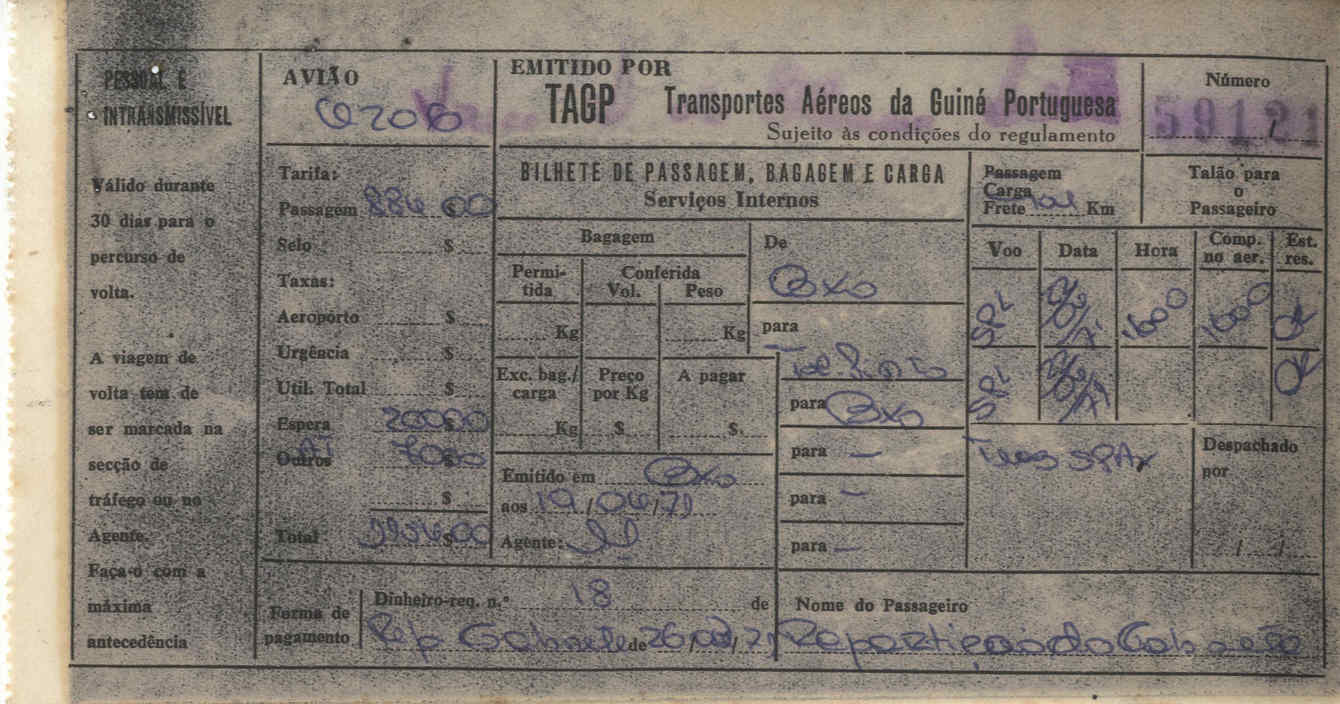 PESSOAL E
INTRANSMISSÍVEL
Válido durante
30 dias para o
percurso de
volta.
A viagem de
volta tem de
ser marcada na
secção de
tráfego ou no
Agente.
Faça-o com a
máxima
antecedência
AVIÃO
Tarifa:
Passagem $
Selo $
Taxas:
Aeroporto $
Urgência $
Util. Total $
Espera 200$00
Outros 70$00
$
Total $
EMITIDO POR
TAGP Transportes Aéreos da Guiné Portuguesa
Sujeito às condições do regulamento
Número
59121
BILHETE DE PASSAGEM, BAGAGEM E CARGA
Serviços Internos
Passagem
Carga
Frete Km
Talão para
o
Passageiro
Bagagem
Permi-
tida
Conferida
Vol. Peso
Kg Kg
Exc. bag./
carga
Preço
por Kg
A pagar
Kg $ $
De
Bxo
para
para Bxo
para —
para —
para —
Voo Data Hora Comp.
no aer. Est.
res.
SPL 1600 1600 OK
SPL OK
Despachado
por
/ /
Emitido em Bxo
aos 19/04/71
Agente:
Forma de
pagamento
Dinheiro-req. n.º 18 de
Rep Gabinete de 26/ /71
Nome do Passageiro
Repartição do Gabinete